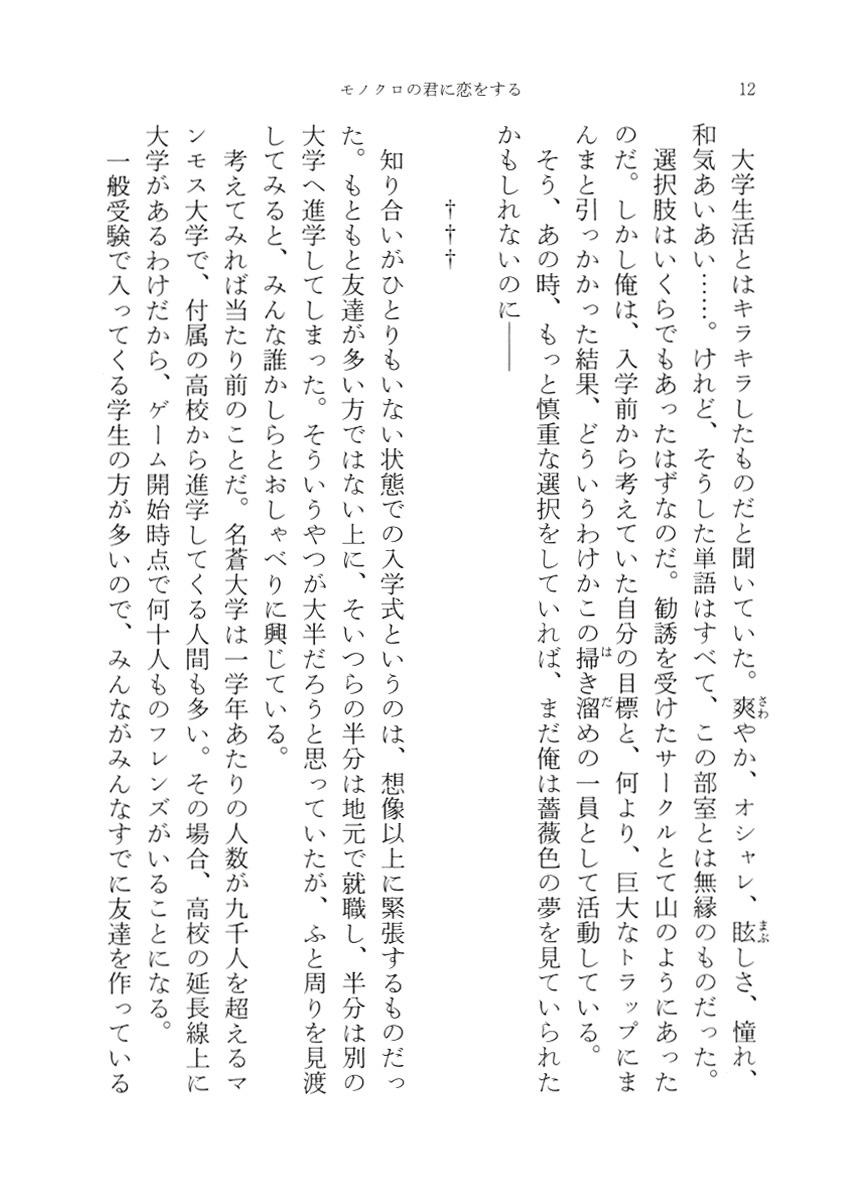 モノクロの君に恋をする
12
大学生活とはキラキラしたものだと聞いていた。爽やか、オシャレ、眩しさ、憧れ、
和気あいあい……。けれど、そうした単語はすべて、この部室とは無縁のものだった。
選択肢はいくらでもあったはずなのだ。勧誘を受けたサークルとて山のようにあった
のだ。しかし俺は、入学前から考えていた自分の目標と、何より、巨大なトラップにま
んまと引っかかった結果、どういうわけかこの掃き溜めの一員として活動している。
そう、あの時、もっと慎重な選択をしていれば、まだ俺は薔薇色の夢を見ていられた
かもしれないのに――
†††
知り合いがひとりもいない状態での入学式というのは、想像以上に緊張するものだっ
た。もともと友達が多い方ではない上に、そいつらの半分は地元で就職し、半分は別の
大学へ進学してしまった。そういうやつが大半だろうと思っていたが、ふと周りを見渡
してみると、みんな誰かしらとおしゃべりに興じている。
考えてみれば当たり前のことだ。名蒼大学は一学年あたりの人数が九千人を超えるマ
ンモス大学で、付属の高校から進学してくる人間も多い。その場合、高校の延長線上に
大学があるわけだから、ゲーム開始時点で何十人ものフレンズがいることになる。
一般受験で入ってくる学生の方が多いので、みんながみんなすでに友達を作っている